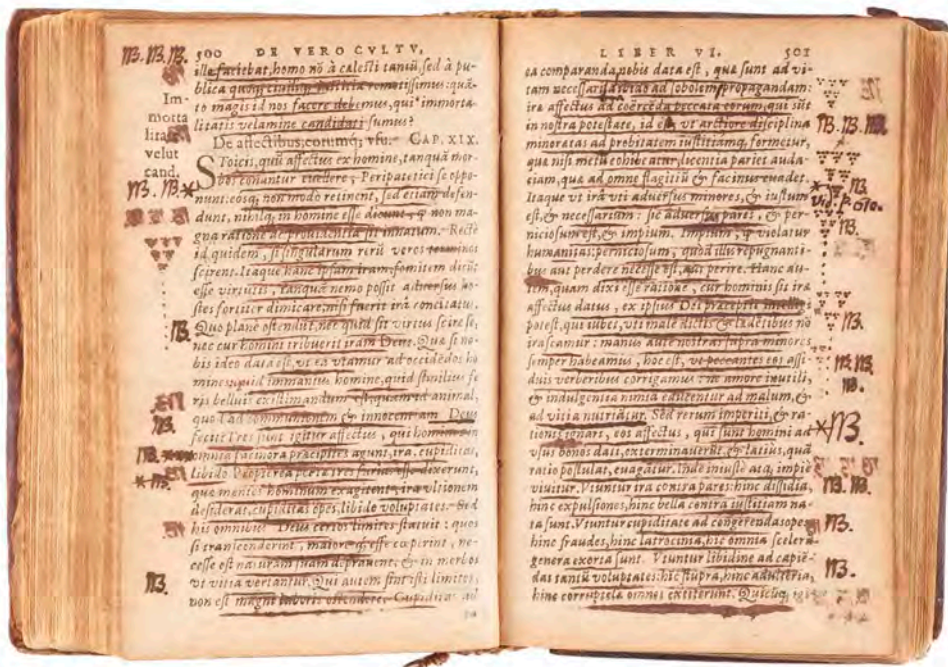 500 DE VERO CVLTV,
ille faciebat, homo nõ à cælesti tantũ, sed à pu-
blica quoq; ciuiliq; iustitia remotissimus: quã-
to magis id nos facere debemus, qui immorta-
litatis velamine candidati sumus?
Im-
morta
litatis
velut
cand.
De affectibus, eorumq; vsu. CAP. XIX.
STOICIS, qui affectus ex homine, tanquã mor-
bos conantur euellere, Peripatetici se oppo-
nunt: eosq; non modo retinent, sed etiam defen-
dunt, nihilq; in homine esse dicunt, q non ma-
gna ratione ac prouidentia sit innatum. Recte
id quidem, si singularum rerũ veros terminos
scirent. Itaque hanc ipsam iram, fomitem dicũt
esse virtutis, tanquã nemo possit aduersus ho-
stes fortiter dimicare, nisi fuerit irâ concitatus.
Quo plane ostendut, nec quid sit virtus scire se,
nec cur homini tribuerit iram Deus. Quæ si no-
bis ideo data est, vt ea vtamur ad occidẽdos ho
mines: quid immanius homine, quid similius fe
ris belluis existimandum est, quam id animal,
quod ad communionem & innocentiam Deus
fecit? Tres sunt igitur affectus, qui homines in
omnia facinora præcipites agunt, ira, cupiditas,
libido. Propterea poetæ tres furias esse dixerunt,
quæ mentes hominum exagitent, ira vltionem
desiderat, cupiditas opes, libido voluptates. Sed
his omnibus Deus certos limites statuit: quos
si transcenderint, maioresq; esse cœperint, ne-
cesse est naturam suam deprauent, & in morbos
ac vitia vertantur. Qui autem sint isti limites,
non est magni laboris ostendere. Cupiditas ad
NB. NB. NB.
NB. NB. *
NB.
NB.
NB.
* NB.
NB.
LIBER VI. 501
ea comparanda nobis data est, quæ sunt ad vi-
tam necessaria: libido ad sobolem propagandam:
iræ affectus ad coërcẽda peccata eorum, qui sũt
in nostra potestate, id est, vt arctiore disciplina
minor ætas ad probitatem iustitiamq; formetur,
quæ nisi metu cohibeatur, licentia pariet auda-
ciam, quæ ad omne flagitiũ & facinus euadet.
Itaque vt irâ vti aduersus minores, & iustum
est, & necessarium: sic aduersus pares, & per-
niciosum est, & impium. Impium, q violatur
humanitas: perniciosum, quod illis repugnanti-
bus aut perdere necesse est, aut perire. Hanc au-
tem, quam dixi esse ratione, cur hominis sit iræ
affectus datus, ex ipsius Dei præceptis intelligi
potest, qui iubet, vti maledictis & lædẽtibus nõ
irascamur: manus autẽ nostras supra minores
semper habeamus, hoc est, vt peccantes eos assi-
duis verberibus corrigamus: ne amore inutili,
& indulgentia nimia educentur ad malum, &
ad vitia nutriãtur. Sed rerum imperiti, & ra-
tionis ignari, eos affectus, qui sunt homini ad
vsus bonos dati, exterminauerũt, & latius, quã
ratio postulat, euagãtur. Inde iniustè atq; impiè
viuitur. Vtuntur ira contra pares: hinc dissidia,
hinc expulsiones, hinc bella contra iustitiam na-
ta sunt. Vtuntur cupiditate ad congerendas opes:
hinc fraudes, hinc latrocinia, hic omnia scelerũ
genera exorta sunt. Vtuntur libidine ad capiẽ-
das tantũ voluptates: hic stupra, hinc adulteria,
hinc corruptelæ omnes extiterunt. Quicũq; igi
NB. NB. NB.
* NB.
NB.
NB.
NB. NB.
NB.
* NB.
NB. NB.
NB.
NB.